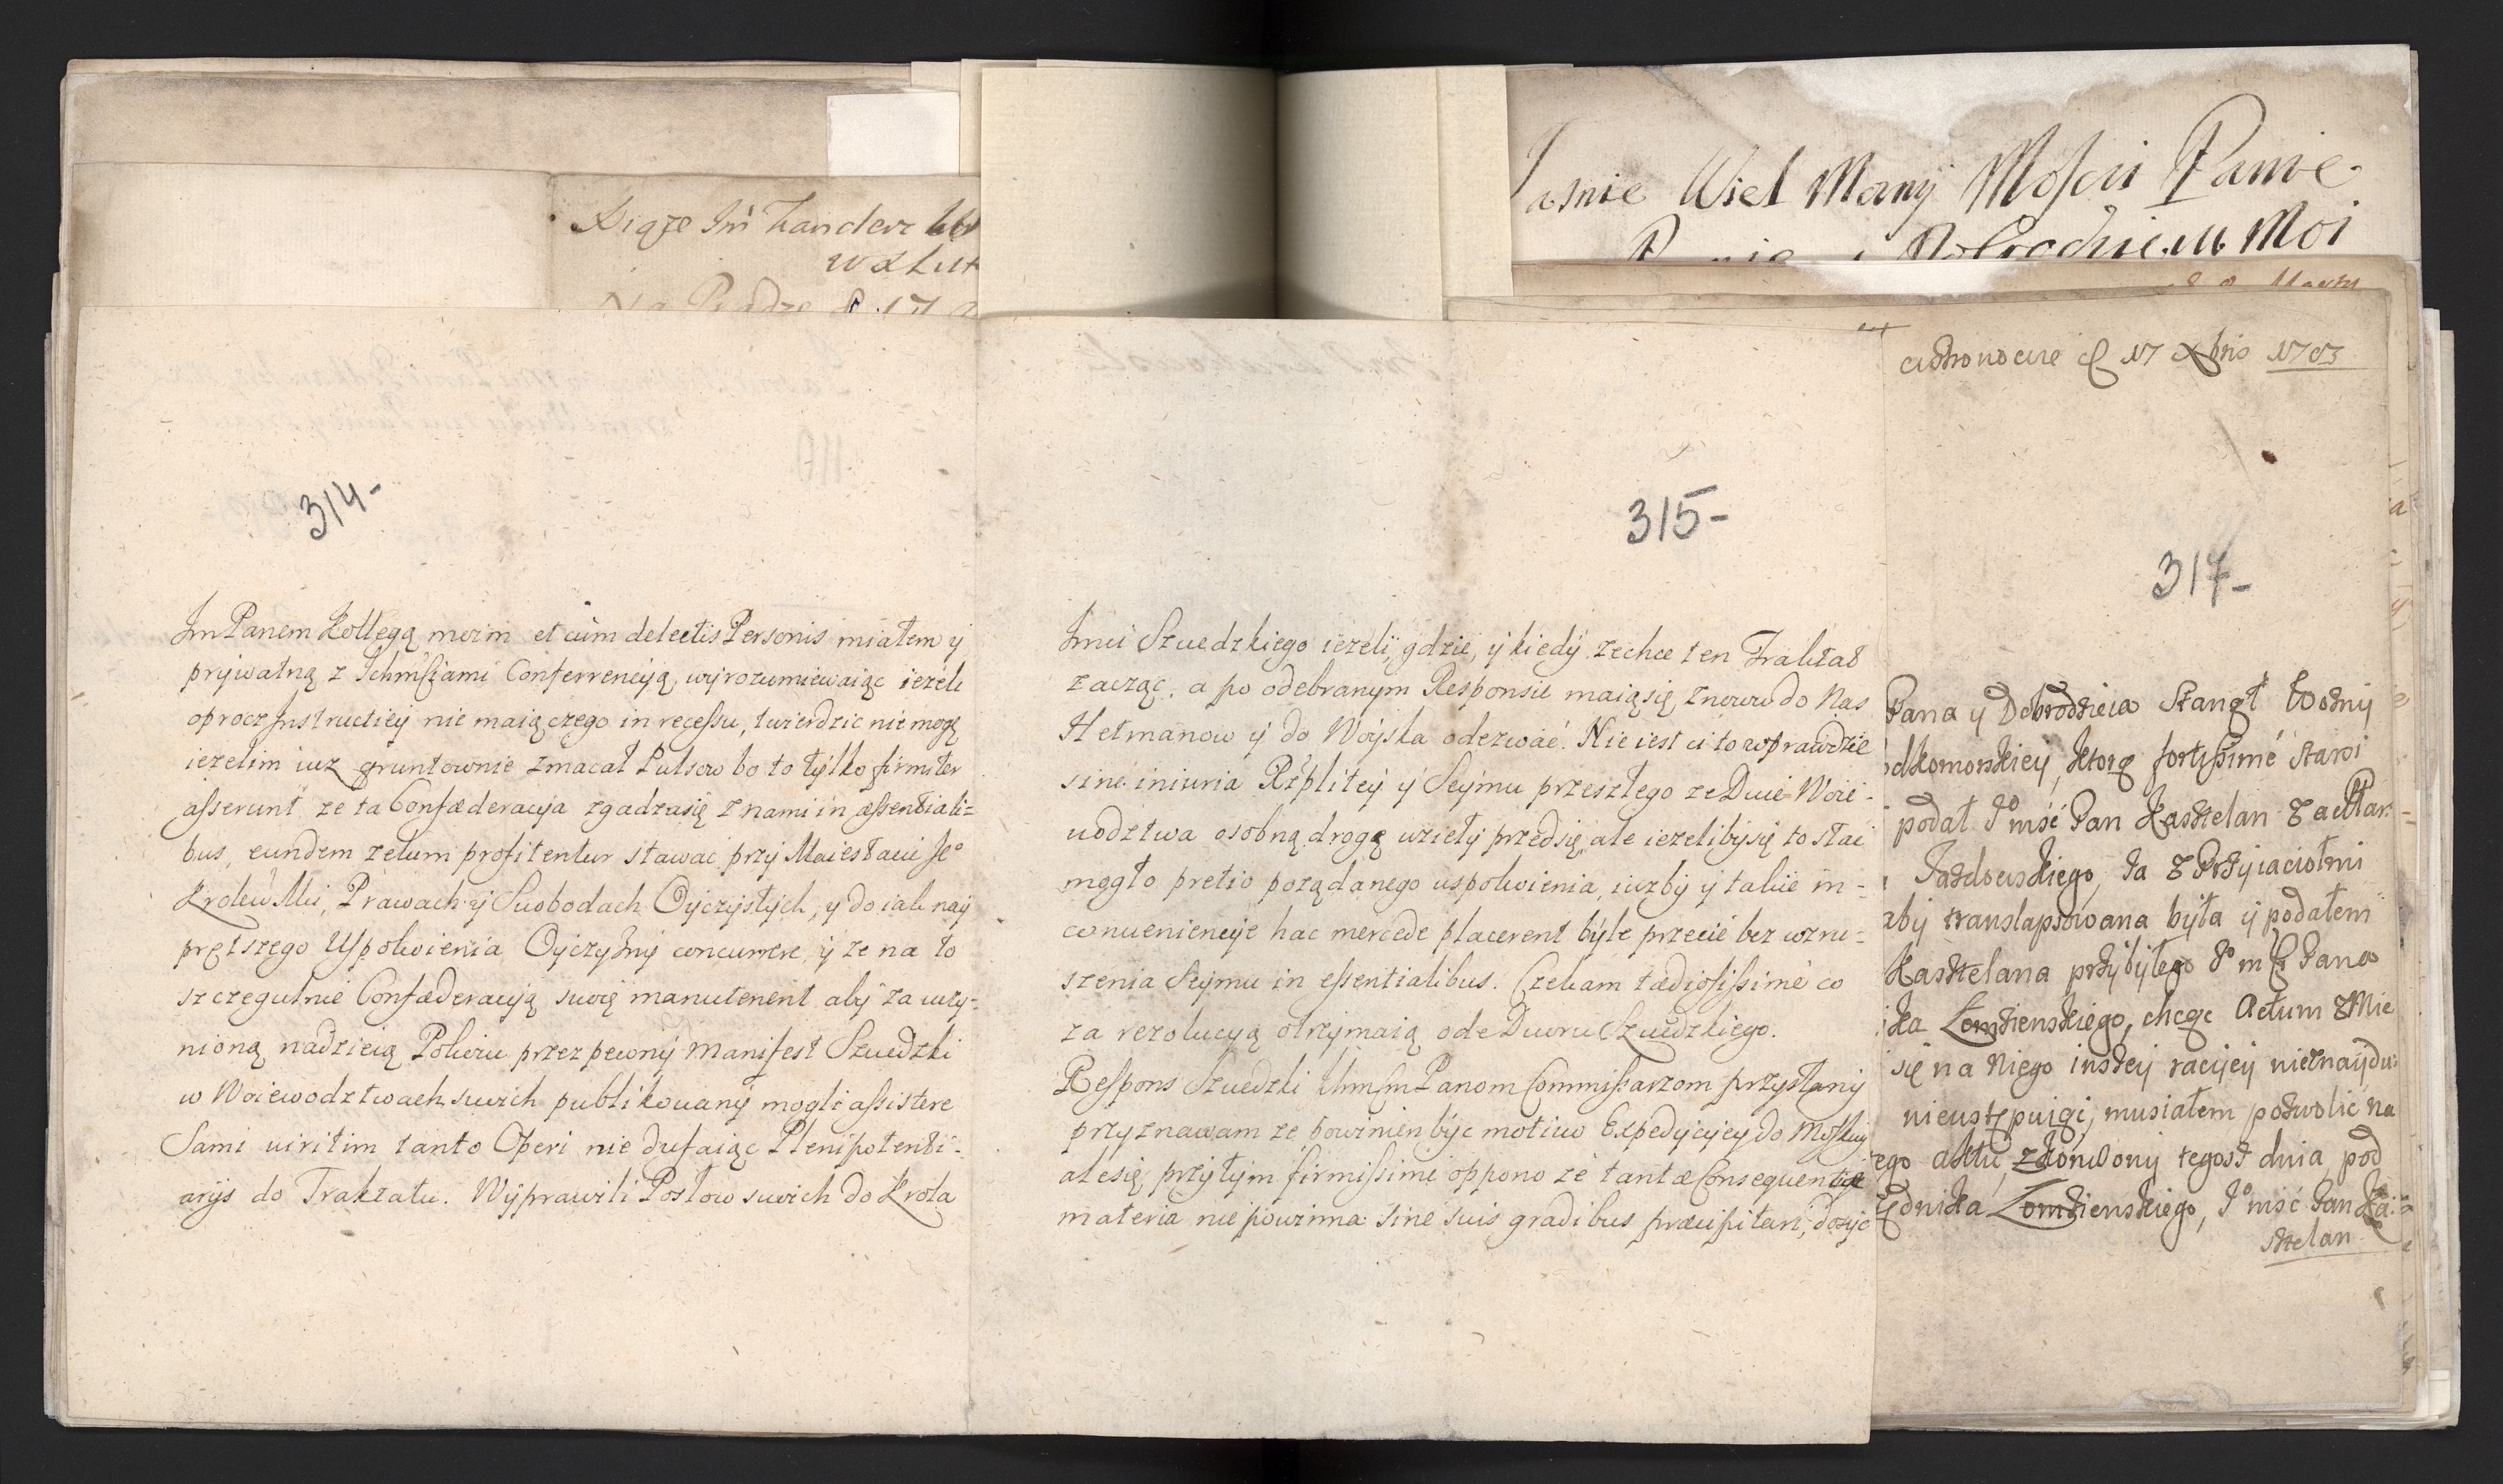 Jasnie Wiel Mozny Mosci Panie
Moi
w
314-
Jm Panem Kollegą moim et cum delectis Personis miałem y
prywatną z Ichmściami Conferrencyą, wyrozumiewaiąc iezeli
oprocz Instructiey nie maią czego in recessu, twierdzic nie mogę
iezelim iuz gruntownie zmacał Pulsow bo to tylko firmiter
asserunt ze ta Confæderacyia zgadzasię z nami in æssentiali=
bus, eundem zelum profitentur stawac przy Maiestacie Je°
Krolew Mci, Prawach y Swobodach Oyczystych, y do iak nay
prętszego Uspokoienia Oyczyzny concurrere, y ze na to
szczegulnie Confæderacyią swoię manutenent aby za uczy=
nioną nadzieią Pokoiu przez pewny Manifest Szwedzki
w Woiewodztwach swoich publikowany mogli assistere
Sami viritim tanto Operi nie dufaiąc Plenipotenti=
aryis do Traktatu. Wyprawili Posłow swoich do Krola
315-
Jmci Szwedzkiego iezeli, gdzie, y kiedy zechce ten Traktat
zacząc, a po odebranym Responsie maią się znowu do Nas
Hetmanow y do Woyska odezwac. Nie iest ci to wprawdzie
sine iniuria Rzplitey y Seymu przeszłego ze Dwie Woie-
wodztwa osobną drogę wzieły przedsię, ale iezeliby się to stac
mogło pretio pożądanego uspokoienia, iuzby y takie in=
conueniencye hac mercede placerent byle przecie bez wzru=
szenia Seymu in essentialibus. Czekam tædiosissime co
za rezolucyą otrzymaią ode Dworu Szwedzkiego.
Respons Szwedzki Ichm Panom Commissarzom przysłany
przyznawam ze powinien byc motiuo Expedycyey do Moskwy
ale się przytym firmissime oppono ze tantæ Consequentiæ
materia nie powinna sine suis gradibus præcipitari, dosyc
17 Xbris 1703
317-
Pana y Dobrodzieia Stanął Wozny
odkomorskiey, ktorą fortissimé stawi
podał J° mść Pan Kasztelan
Ja z Przyiaciołmi
aby translapsowana była y podałem
Kasztelana przybyłego J° mśc Pana
ika Łomzienskiego, chcąc Actum
się na Niego inszey racyiey nieznaydu:
nieustępuiąc, musiałem pozwolić na
ego aktu, zkonczony tegosz dnia pod
Łomzienskiego, J° mść Pan Ka:
sztelan